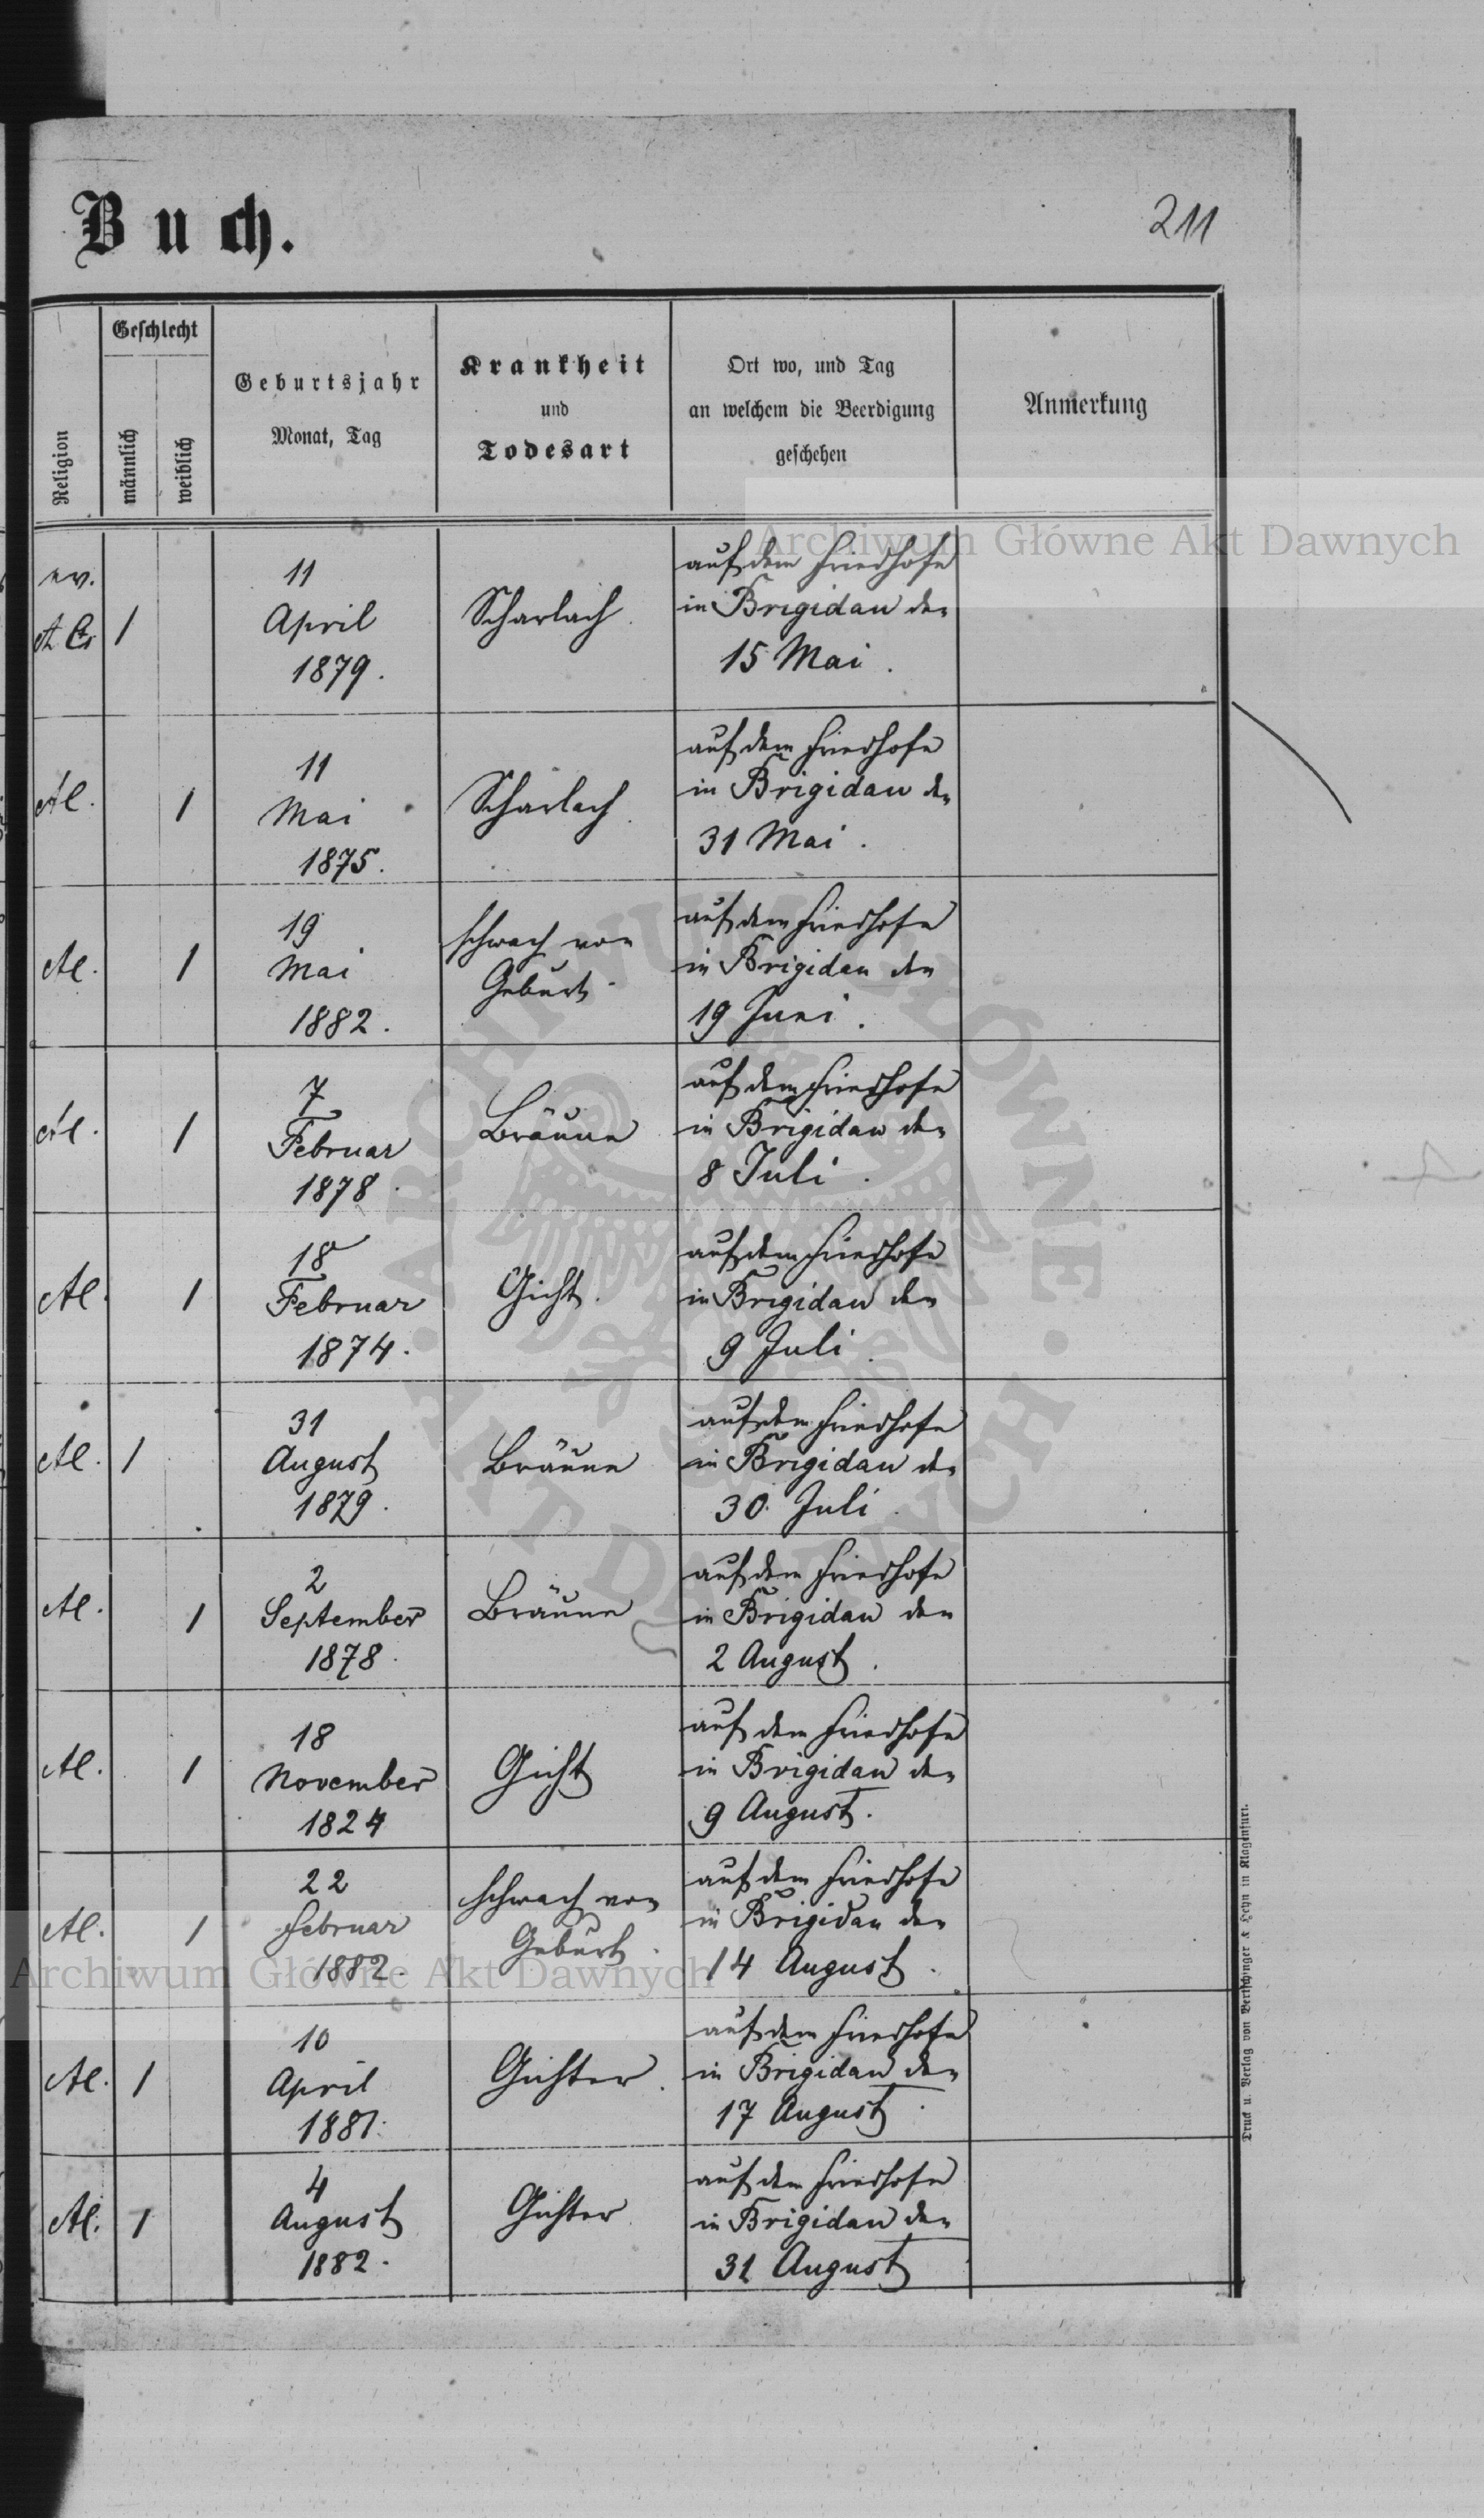 Buch.
211
Religion
Geschlecht
männlich
weiblich
Geburtsjahr
Monat, Tag
Krankheit
und
Todesart
Ort wo, und Tag
an welchem die Beerdigung
geschehen
Anmerkung
Archiwum Główne Akt Dawnych
ev.
1
11
April
1879.
Scharlach.
auf dem Friedhofe
in Brigidau den
15 Mai.
1
11
Mai
1875.
Scharlach.
auf dem Friedhofe
in Brigidau den
31 Mai.
1
19
Mai
1882.
schwach von
Geburt.
auf dem Friedhofe
in Brigidau den
19 Juni.
1
7
Februar
1878.
Bräune
auf dem Friedhofe
in Brigidau den
8 Juli.
1
18
Februar
1874.
Gicht.
auf dem Friedhofe
in Brigidau den
9 Juli.
1
31
August
1879.
Bräune
auf dem Friedhofe
in Brigidau den
30. Juli.
1
2
September
1878.
Bräune
auf dem Friedhofe
in Brigidau den
2 August.
1
18
November
1824
Gicht
auf dem Friedhofe
in Brigidau den
9 August.
1
22
Februar
1882.
schwach von
Geburt.
auf dem Friedhofe
in Brigidau den
14 August.
Archiwum Główne Akt Dawnych
1
10
April
1881.
Gichter.
auf dem Friedhofe
in Brigidau den
17 August.
1
4
August
1882.
Gichter.
auf dem Friedhofe
in Brigidau den
31 August
Druck u. Verlag von Bertschinger & Heyn in Klagenfurt.
ARCHIWUM GŁÓWNE · AKT DAWNYCH ·